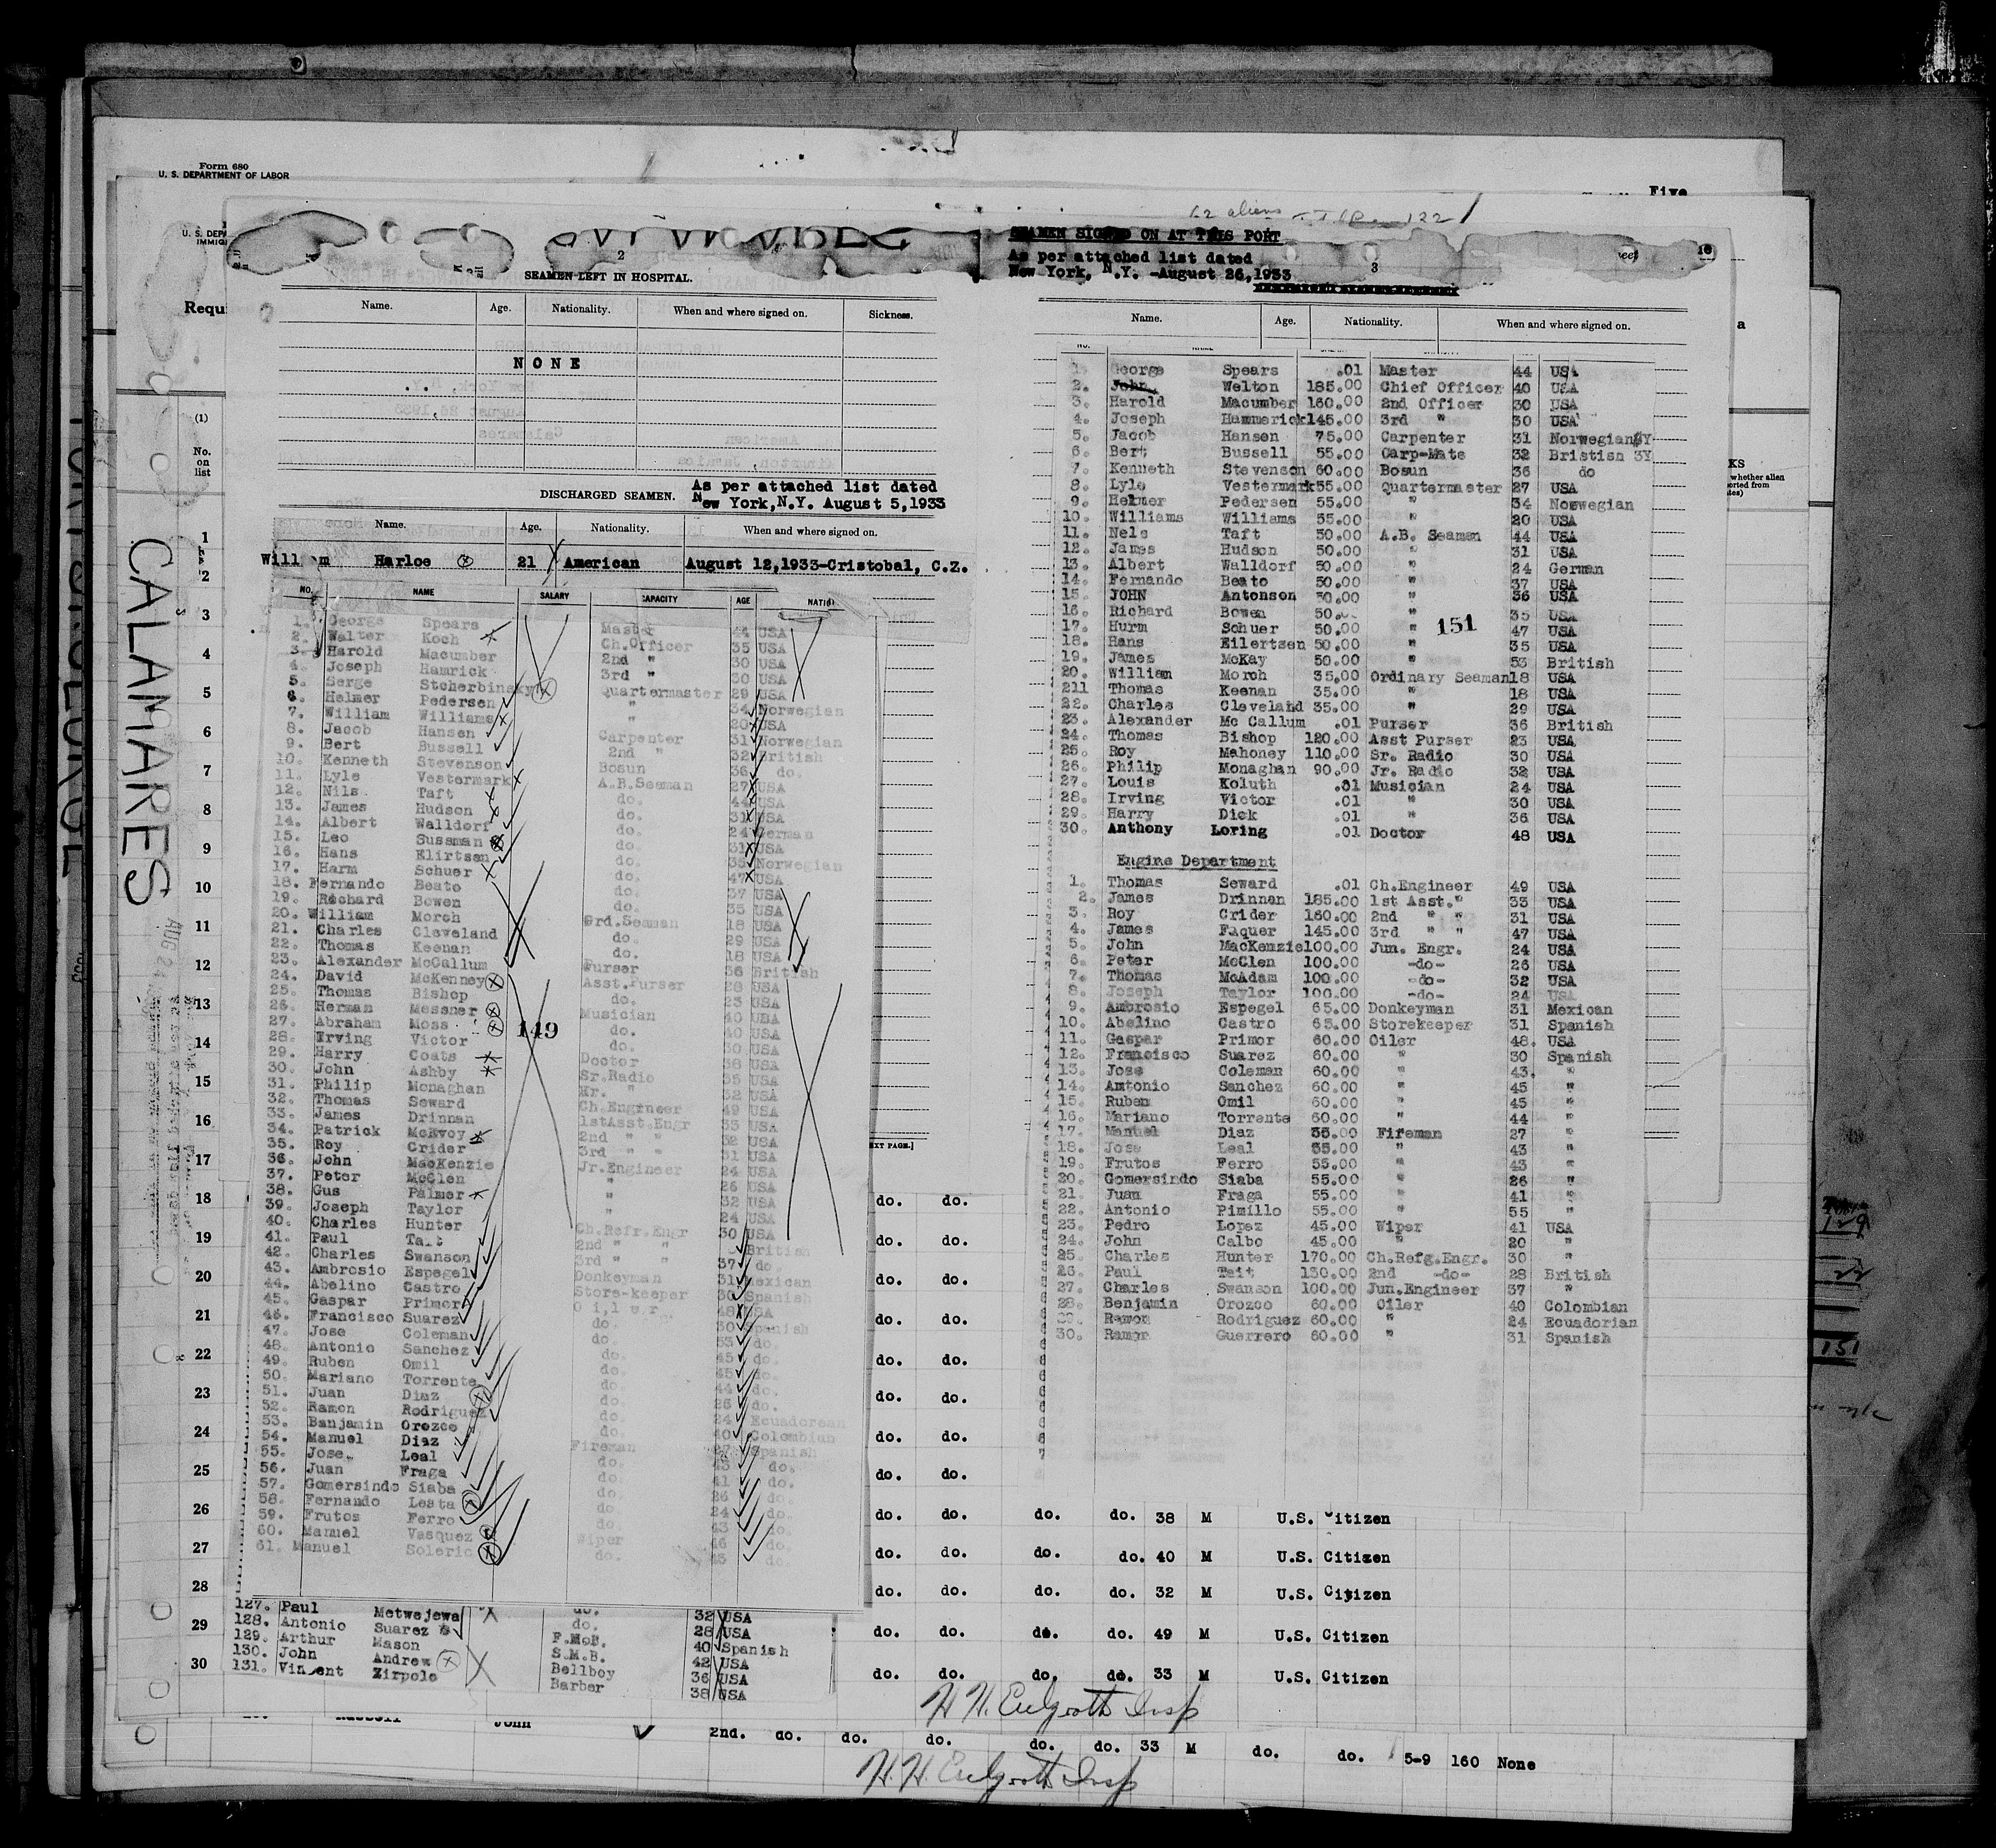 Form 680
U. S. DEPARTMENT OF LABOR
Five
62 aliens
122
CALAMARES
Requ
(1)
No.
on
list
2
SEAMEN LEFT IN HOSPITAL.
Name. Age. Nationality. When and where signed on. Sickness.
NONE
DISCHARGED SEAMEN. As per attached list dated
New York,N.Y. August 5,1933
Name. Age. Nationality. When and where signed on.
William Harloe 21 American August 12,1933-Cristobal, C.Z.
NO. NAME SALARY CAPACITY AGE
1. George Spears Master 44 USA
2. Walter Koch Ch.Officer 35 USA
3. Harold Macumber 2nd " 30 USA
4. Joseph Hamrick 3rd " 30 USA
5. Serge Stcherbinsky Quartermaster 29 USA
6. Helmer Pedersen " 34 Norwegian
7. William Williams " 20 USA
8. Jacob Hansen Carpenter 31 Norwegian
9. Bert Bussell 2nd " 32 British
10. Kenneth Stevenson Bosun 36 do.
11. Lyle Vestermark A.B.Seaman 27 USA
12. Nils Taft do. 44 USA
13. James Hudson do. 31 USA
14. Albert Walldorf do. 24 German
15. Leo Sussman do. 31 USA
16. Hans Elirtsen do. 35 Norwegian
17. Harm Schuer do. 47 USA
18. Fernando Beato do. 37 USA
19. Rochard Bowen do. 35 USA
20. William Morch Ord.Seaman 18 USA
21. Charles Cleveland do. 29 USA
22. Thomas Keenan do. 18 USA
23. Alexander McCallum Purser 36 British
24. David McKenney Asst.Purser 28 USA
25. Thomas Bishop do. 23 USA
26. Herman Messner Musician 40 USA
27. Abraham Moss do. 40 USA
149
28. Erving Victor do. 30 USA
29. Harry Coats Doctor 38 USA
30. John Ashby Sr.Radio 35 USA
31. Philip Monaghan 32 USA
32. Thomas Seward Ch.Engineer 49 USA
33. James Drinnan 1stAsst.Engr 33 USA
34. Patrick McEvoy 2nd " " 32 USA
35. Roy Crider 3rd " " 31 USA
36. John MacKenzie Jr.Engineer 24 USA
37. Peter McClen " 26 USA
38. Gus Palmer " 32 USA
39. Joseph Taylor " 24 USA
40. Charles Hunter Ch.Refr.Engr 30 USA
41. Paul Tait 2nd " " British
42. Charles Swanson 3rd " " 37 do.
43. Ambrosio Espegel Donkeyman 31 Mexican
44. Abelino Castro Store-keeper 30 Spanish
45. Gaspar Primor Oiler 48 USA
46. Francisco Suarez do. 30 Spanish
47. Jose Coleman do. do.
48. Antonio Sanchez do. 45 do.
49. Ruben Omil do. 45 do.
50. Mariano Torrente do. 44 do.
51. Juan Diaz do. 26 do.
52. Ramon Rodriguez do. 24 Ecuadorean
53. Banjamin Orozco do. 40 Colombian
54. Manuel Diaz Fireman 27 Spanish
55. Jose. Leal do. 43 do.
56. Juan Fraga do. 41 do.
57. Gomersindo Siaba do. 26 do.
58. Fernando Lesta do. 24 do.
59. Frutos Ferro do. 43 do.
60. Manuel Vasquez Wiper 46 do.
61. Manuel Soleric do. 43 do.
127. Paul Metwejewa do. 32 USA
128. Antonio Suarez do. 28 USA
129. Arthur Mason 40 Spanish
130. John Andrew S.M.B. 42 USA
131. Vincent Zirpolo Bellboy 36 USA
Barber 38 USA
SEAMEN SIGNED ON AT THIS PORT
As per attached list dated
New York, N.Y. -August 26,1933
3
10
Name. Age. Nationality. When and where signed on.
1. George Spears .01 Master 44 USA
2. John Welton 185.00 Chief Officer 40 USA
3. Harold Macumber 160.00 2nd Officer 30 USA
4. Joseph Hammerick 145.00 3rd " 30 USA
5. Jacob Hansen 75.00 Carpenter 31 Norwegian
6. Bert Bussell 55.00 Carp-Mate 32 Bristish 3Y
7. Kenneth Stevenson 60.00 Bosun 36 do
8. Lyle Vestermark 55.00 Quartermaster 27 USA
9. Helmer Pedersen 55.00 " 34 Norwegian
10. Williams Williams 55.00 " 20 USA
11. Nels Taft 50.00 A.B. Seaman 44 USA
12. James Hudson 50.00 " 31 USA
13. Albert Walldorf 50.00 " 24 German
14. Fernando Beato 50.00 " 37 USA
15. JOHN Antonson 50.00 " 36 USA
16. Richard Bowen 50. " 35 USA
17. Hurm Schuer 50.00 " 47 USA
151
18. Hans Eilertsen 50.00 " 35 USA
19. James McKay 50.00 " 53 British
20. William Morch 35.00 Ordinary Seaman 18 USA
211 Thomas Keenan 35.00 " 18 USA
22. Charles Cleveland 35.00 " 29 USA
23. Alexander Mc Callum .01 Purser 36 British
24. Thomas Bishop 120.00 Asst Purser 23 USA
25. Roy Mahoney 110.00 Sr. Radio 30 USA
26. Philip Monaghan 90.00 Jr. Radio 32 USA
27. Louis Koluth .01 Musician 24 USA
28. Irving Victor .01 " 30 USA
29. Harry Dick .01 " 36 USA
30. Anthony Loring .01 Doctor 48 USA
Engine Department
1. Thomas Seward .01 Ch.Engineer 49 USA
2. James Drinnen 185.00 1st Asst." 33 USA
3. Roy Crider 160.00 2nd " " 31 USA
4. James Faquer 145.00 3rd " " 47 USA
5. John MacKenzie 100.00 Jun. Engr. 24 USA
6. Peter McClen 100.00 -do- 26 USA
7. Thomas McAdam 100.00 -do- 32 USA
8. Joseph Taylor 100.00 -do- 24 USA
9. Ambrosio Espegel 65.00 Donkeyman 31 Mexican
10. Abelino Castro 65.00 Storekeeper 31 Spanish
11. Gaspar Primor 60.00 Oiler 48. USA
12. Francisco Suarez 60.00 " 30 Spanish
13. Jose Coleman 60.00 " 43. "
14. Antonio Sanchez 60.00 " 45 "
15. Ruben Omil 60.00 " 45 "
16. Mariano Torrente 60.00 " 44 "
17. Manuel Diaz 55.00 Fireman 27 "
18. Jose Leal 55.00 " 43 "
19. Frutos Ferro 55.00 " 43 "
20. Gomersindo Siaba 55.00 " 26 "
21. Juan Fraga 55.00 " 41 "
22. Antonio Pimillo 55.00 " 55 "
23. Pedro Lopez 45.00 Wiper 41 USA
24. John Calbo 45.00 " 20 "
25. Charles Hunter 170.00 Ch.Refg.Engr. 30 "
26. Paul Tait 130.00 2nd -do- 28 British
27. Charles Swanson 100.00 Jun.Engineer 37 "
28. Benjamin Orozco 60.00 Oiler 40 Colombian
29. Ramon Rodriguez 60.00 " 24 Ecuadorian
30. Ramon Guerrero 60.00 " 31 Spanish
EXT PAGE.]
do. do.
do. do.
do. do.
do. do.
do. do.
do. do.
do. do.
do. do.
do. do. do. do. 38 M U.S. Citizen
do. do. do. do. 40 M U.S. Citizen
do. do. do. do. 32 M U.S. Citizen
do. do. do. do. 49 M U.S. Citizen
do. do. do. do. 33 M U.S. Citizen
1
2
3
4
5
6
7
8
9
10
11
12
13
14
15
16
17
18
19
20
21
22
23
24
25
26
27
28
29
30
John 2nd. do. do. do. do. do. 33 M do. do. 5-9 160 None
129
22
151